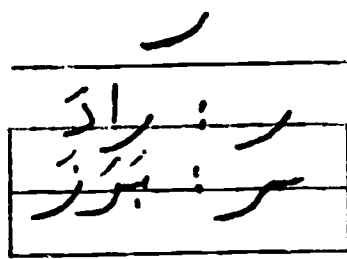 ر
ر : رادَ
ـر : بَرَزَ